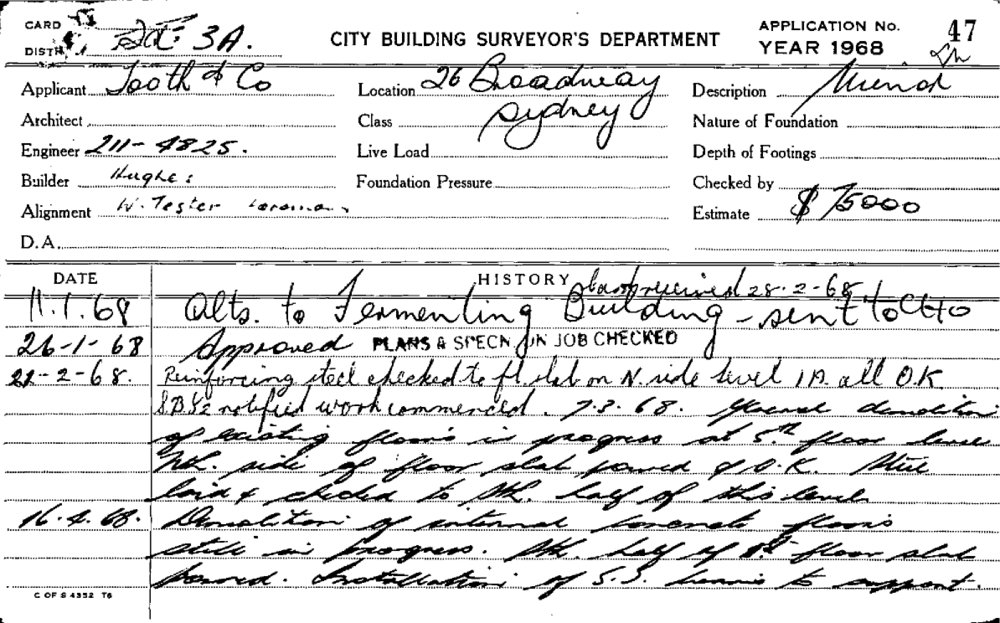 CARD
DIST. Dt: 3A.
CITY BUILDING SURVEYOR'S DEPARTMENT
APPLICATION No. 47
YEAR 1968
Applicant Tooth & Co
Location 26 Broadway
Sydney
Description
Architect
Class
Nature of Foundation
Engineer 211-4825.
Live Load
Depth of Footings
Builder Hughes
Foundation Pressure
Checked by
Alignment W. Tester
Estimate $ 75000
D.A.
DATE HISTORY received 28-2-68
11.1.68 Alts. to Fermenting Building - sent to CHO
26-1-68 Approved PLANS & SPECN ON JOB CHECKED
22-2-68. Reinforcing steel checked to fl. slab on N. side level 1A. all O.K.
notified work commenced. 7.3.68. General demolition
of existing floors in progress at 5th floor level
Nth. side of floor slab poured & O.K. Steel
laid & checked to Sth. half of this level
16.4.68. Demolition of internal concrete floors
still in progress. Sth. half of floor slab
poured. Installation of beams to support.
C OF S 4352 T6